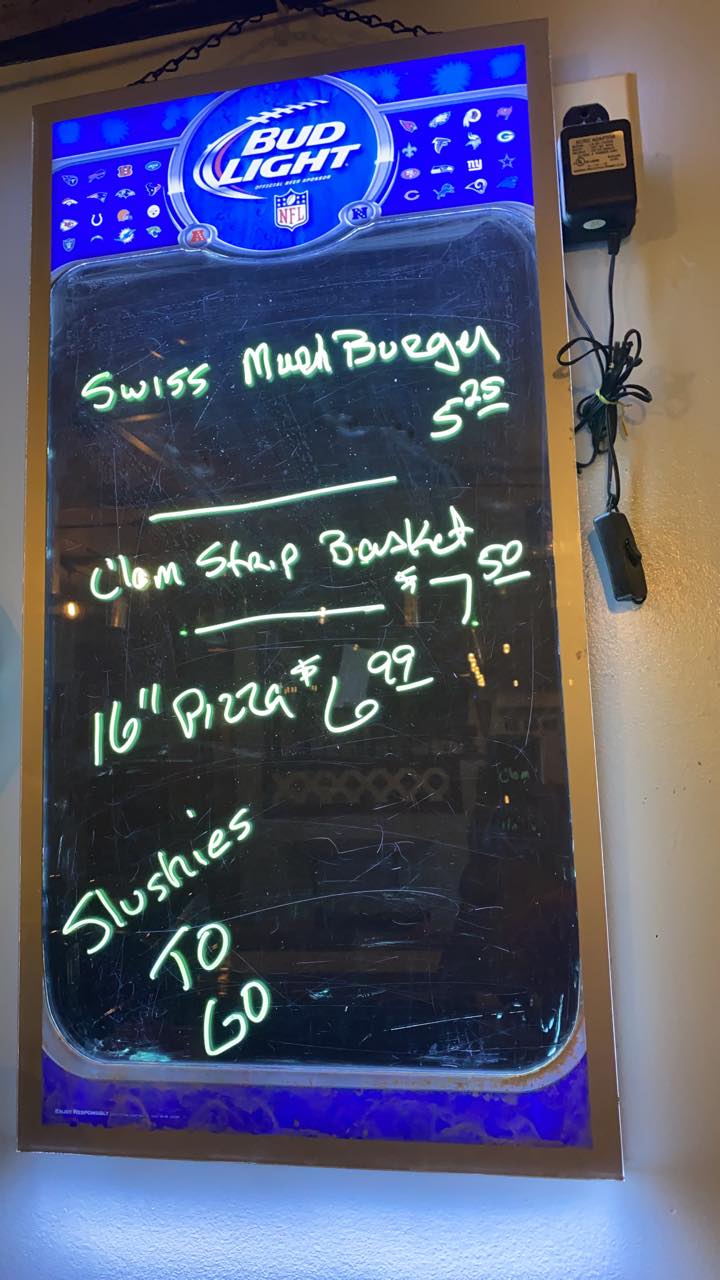 BUD
LIGHT
OFFICIAL BEER SPONSOR
NFL
A
N
Swiss Mush Burger
5 25
Clam Strip Basket
$7 50
16" Pizza $6 99
Slushies
TO
GO
ENJOY RESPONSIBLY
AC/DC ADAPTOR